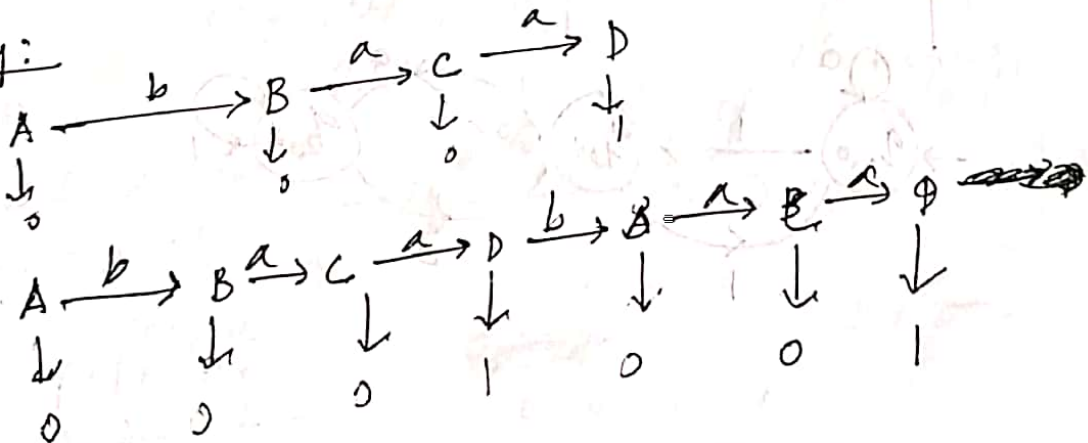 A b B a C a D
0 0 0 1
A b B a C a D b B a C a D
0 0 0 1 0 0 1